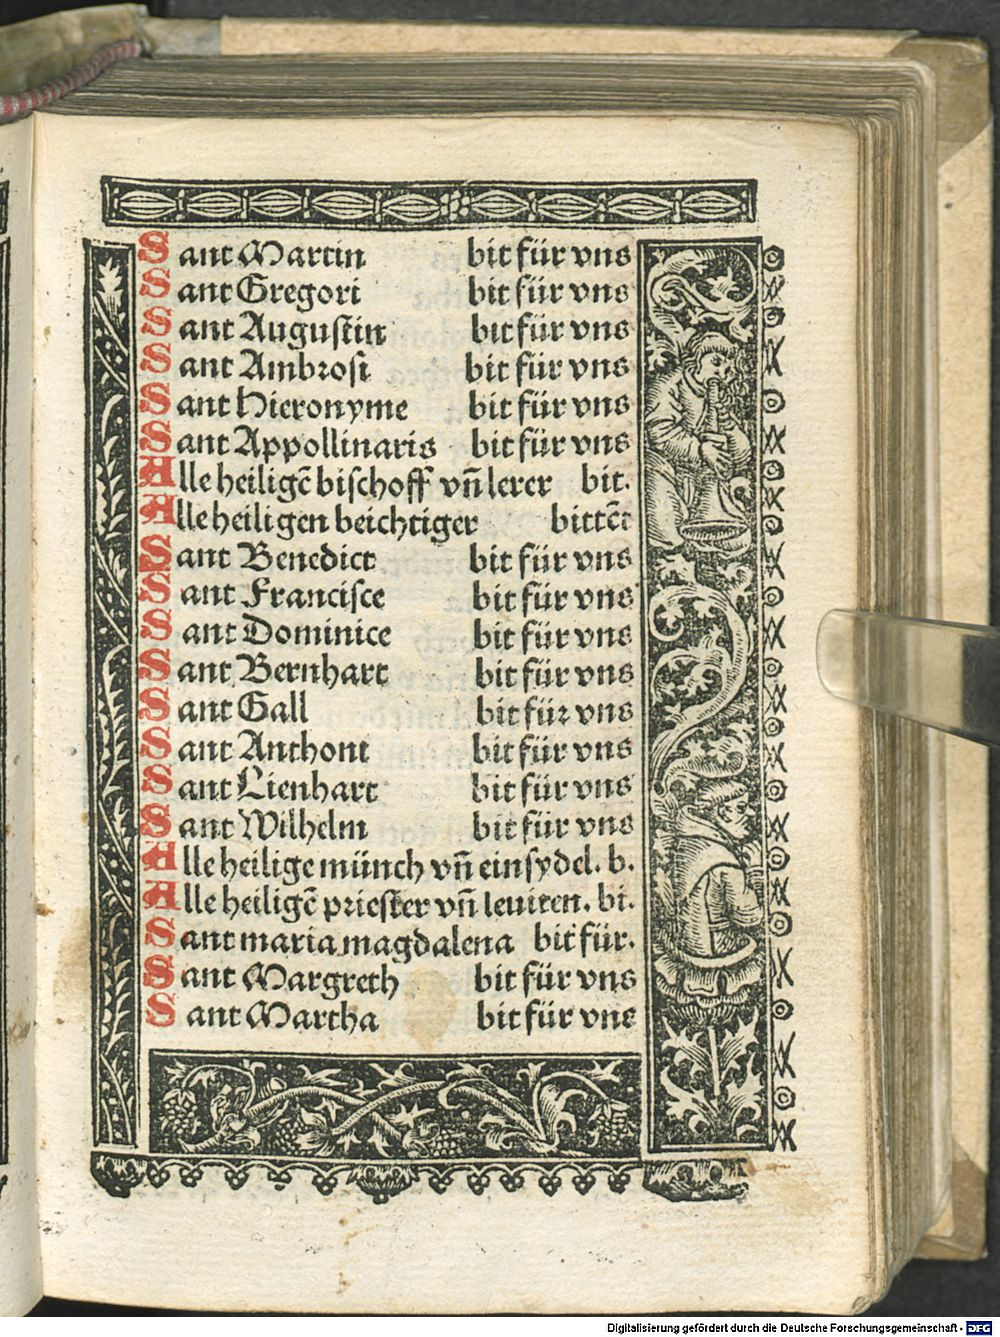 Sant Martin bit für vns
Sant Gregori bit für vns
Sant Augustin bit für vns
Sant Ambrosi bit für vns
Sant Hieronyme bit für vns
Sant Appollinaris bit für vns
Alle heiligē bischoff vn̄ lerer bit.
Alle heiligen beichtiger bittēt
Sant Benedict bit für vns
Sant Francisce bit für vns
Sant Dominice bit für vns
Sant Bernhart bit für vns
Sant Gall bit für vns
Sant Anthoni bit für vns
Sant Lienhart bit für vns
Sant Wilhelm bit für vns
Alle heilige münch vn̄ einsydel. b.
Alle heiligē priester vn̄ leuiten. bi.
Sant maria magdalena bit für.
Sant Margreth bit für vns
Sant Martha bit für vne
Digitalisierung gefördert durch die Deutsche Forschungsgemeinschaft - DFG